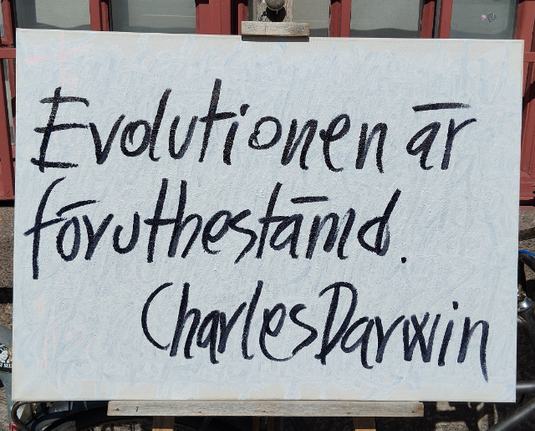 Evolutionen är
förutbestämd.
Charles Darwin